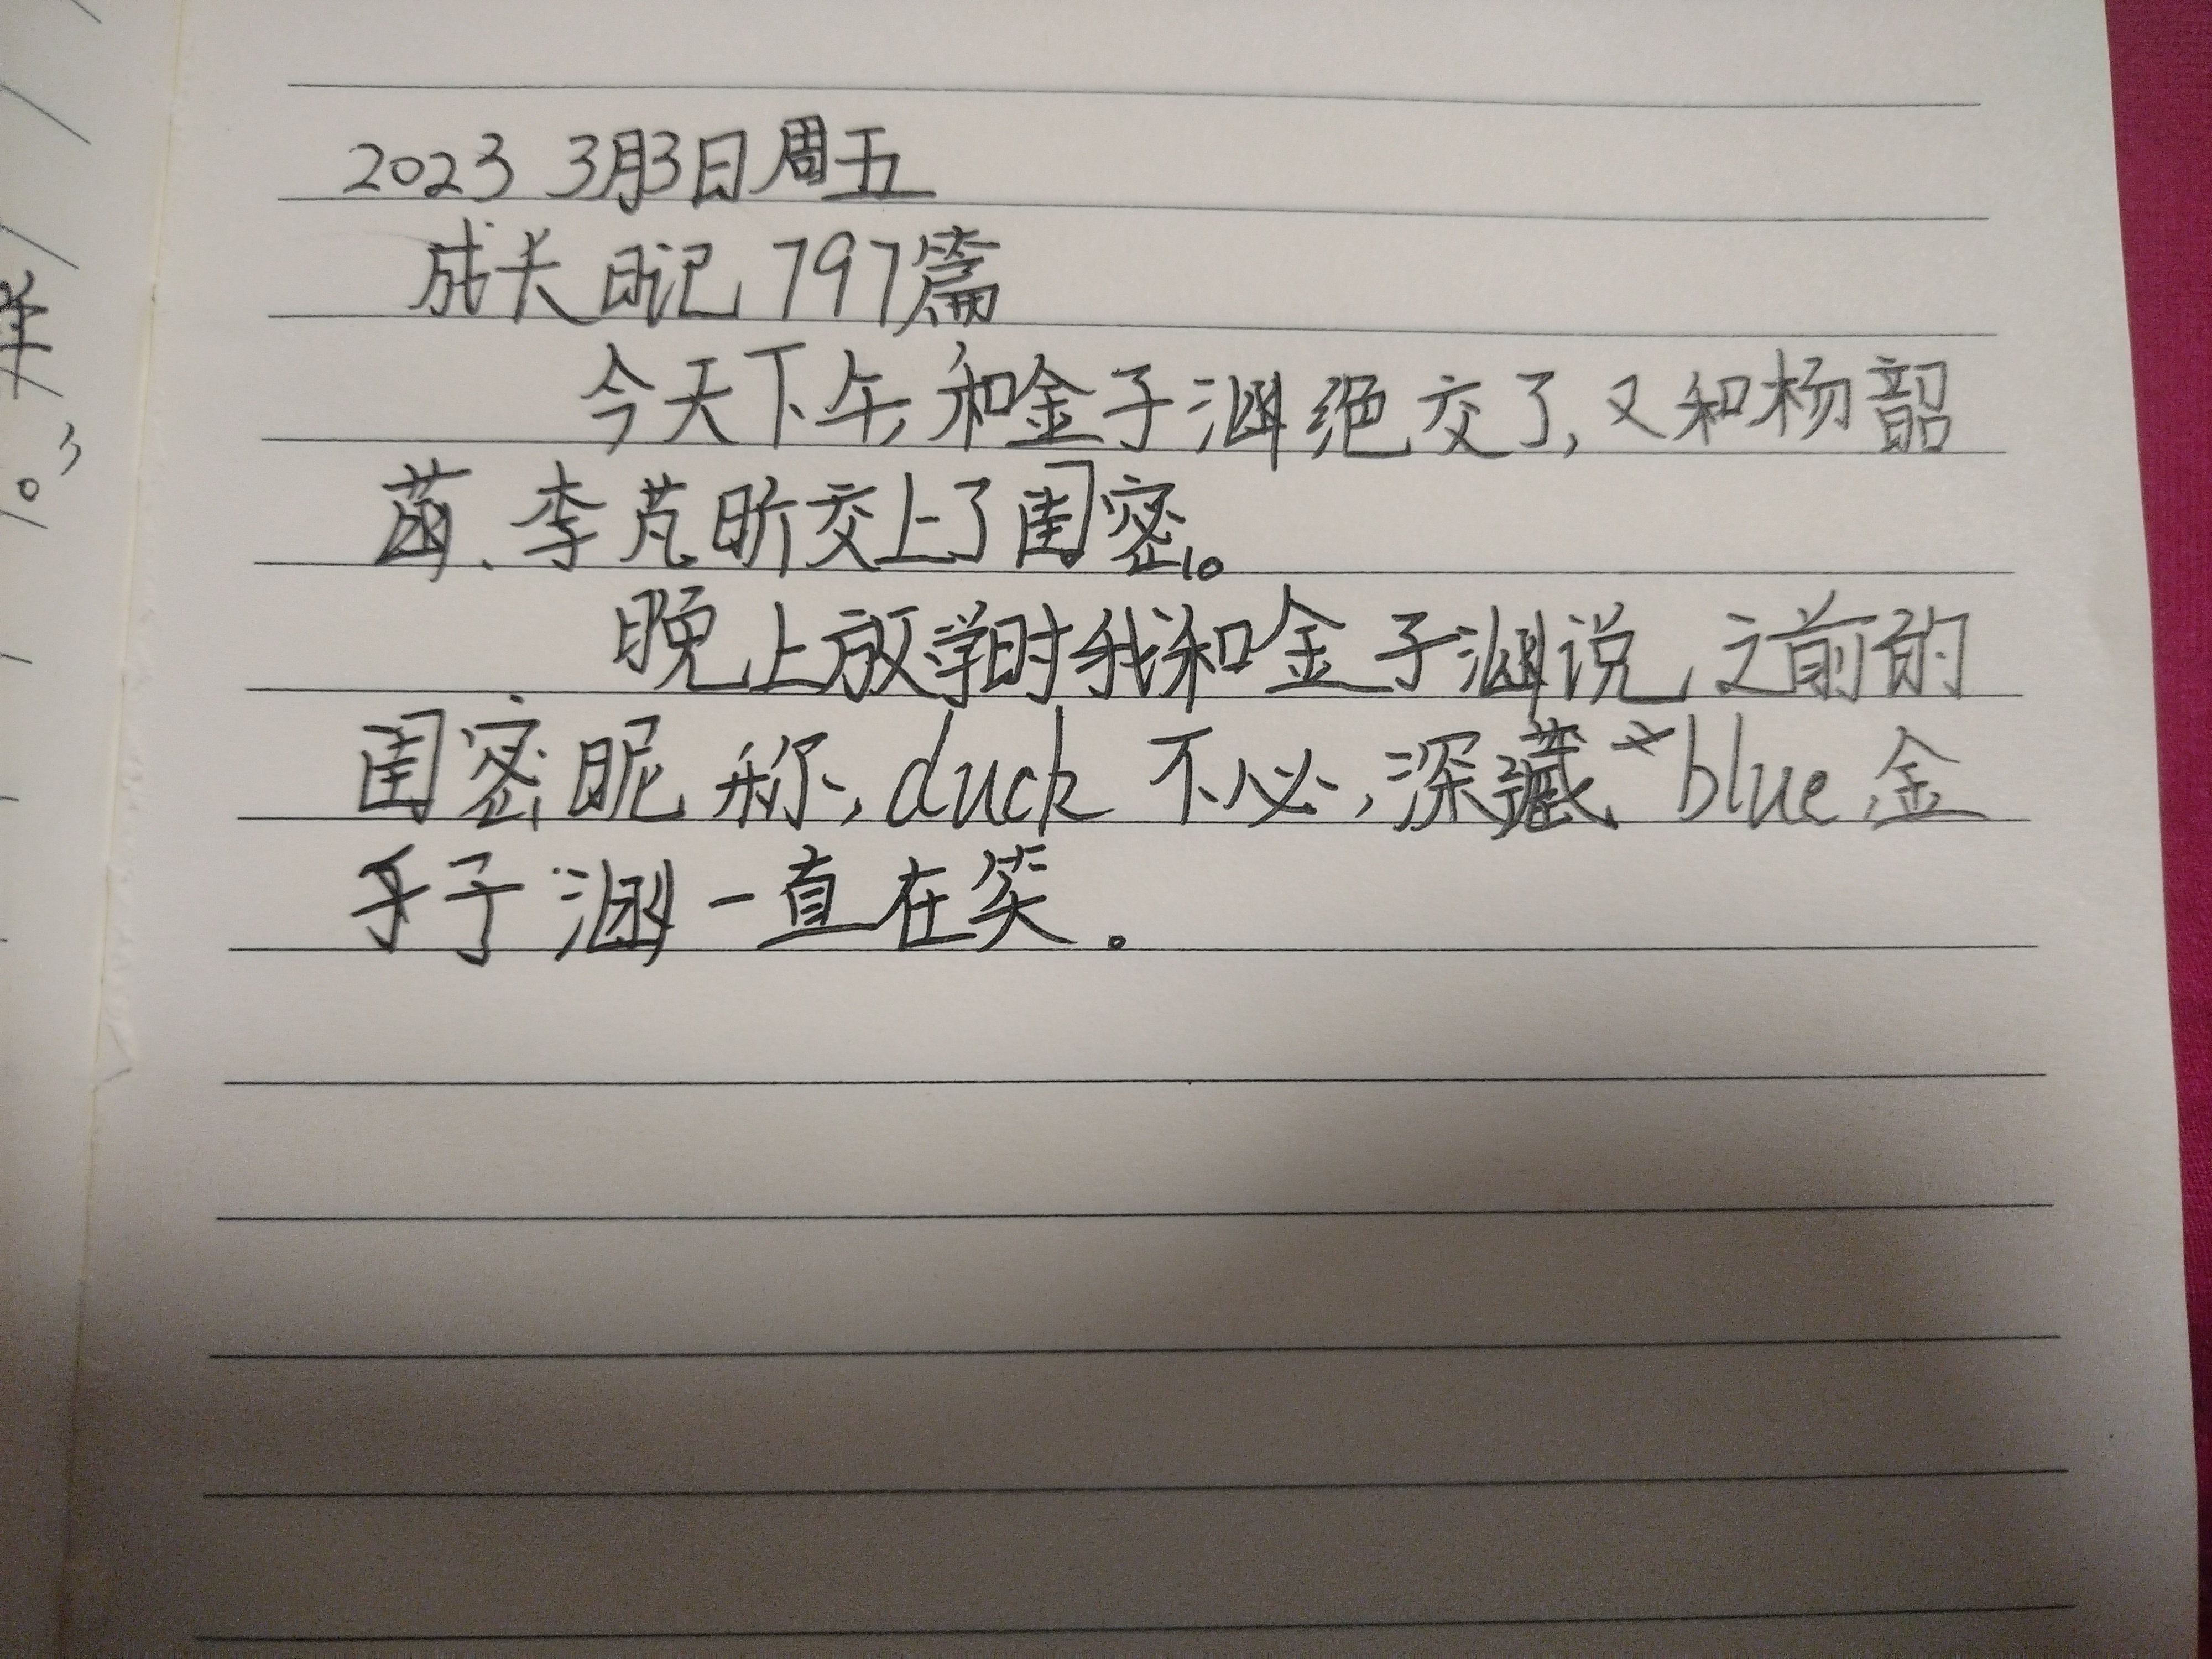 2023 3月3日周五
成长日记797篇
今天下午,和金子涵绝交了,又和杨韶
菡、李芃昕交上了闺密。
晚上放学时我和金子涵说,之前的
闺密昵称,duck不必,深藏blue金
子涵一直在笑。